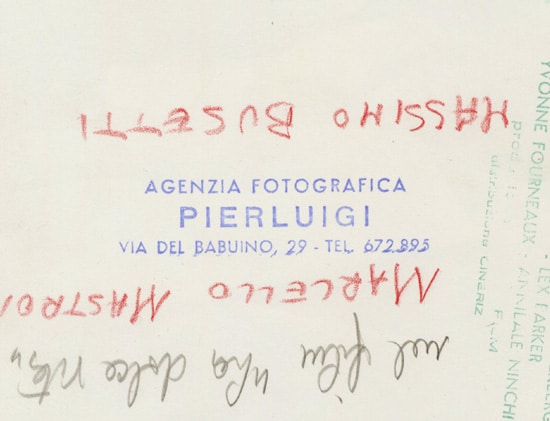 AGENZIA FOTOGRAFICA
PIERLUIGI
VIA DEL BABUINO, 29 - TEL. 672.895
nel film "la dolce vita"
MARCELLO MASTROI
MASSIMO BUSETTI
YVONNE FOURNEAUX - LEX PARKER
- ANNIBALE NINCHI
distribuzione CINERIZ